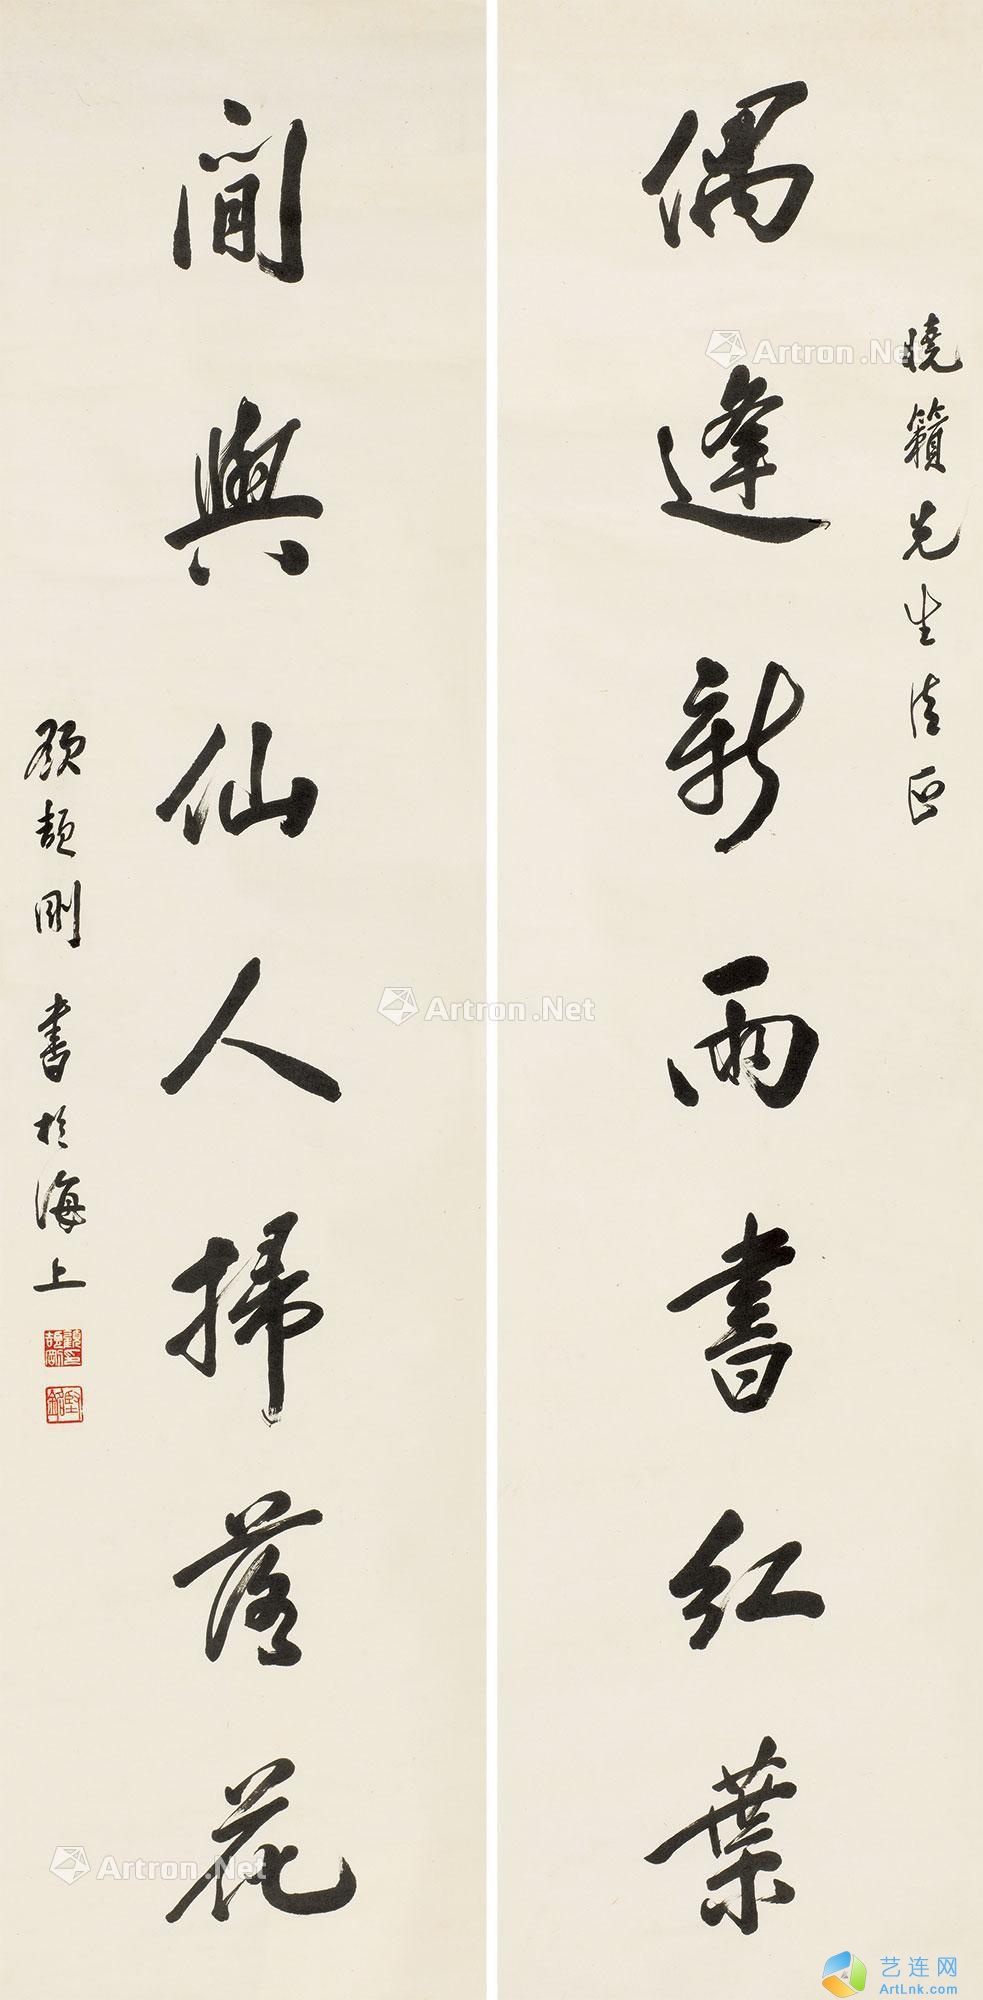 曉籟先生法正
偶逢新雨書紅葉
閒與仙人掃落花
顧頡剛 書於海上
顧頡剛印
Artron.Net
Artron.Net
Artron.Net
艺连网
ArtLnk.com